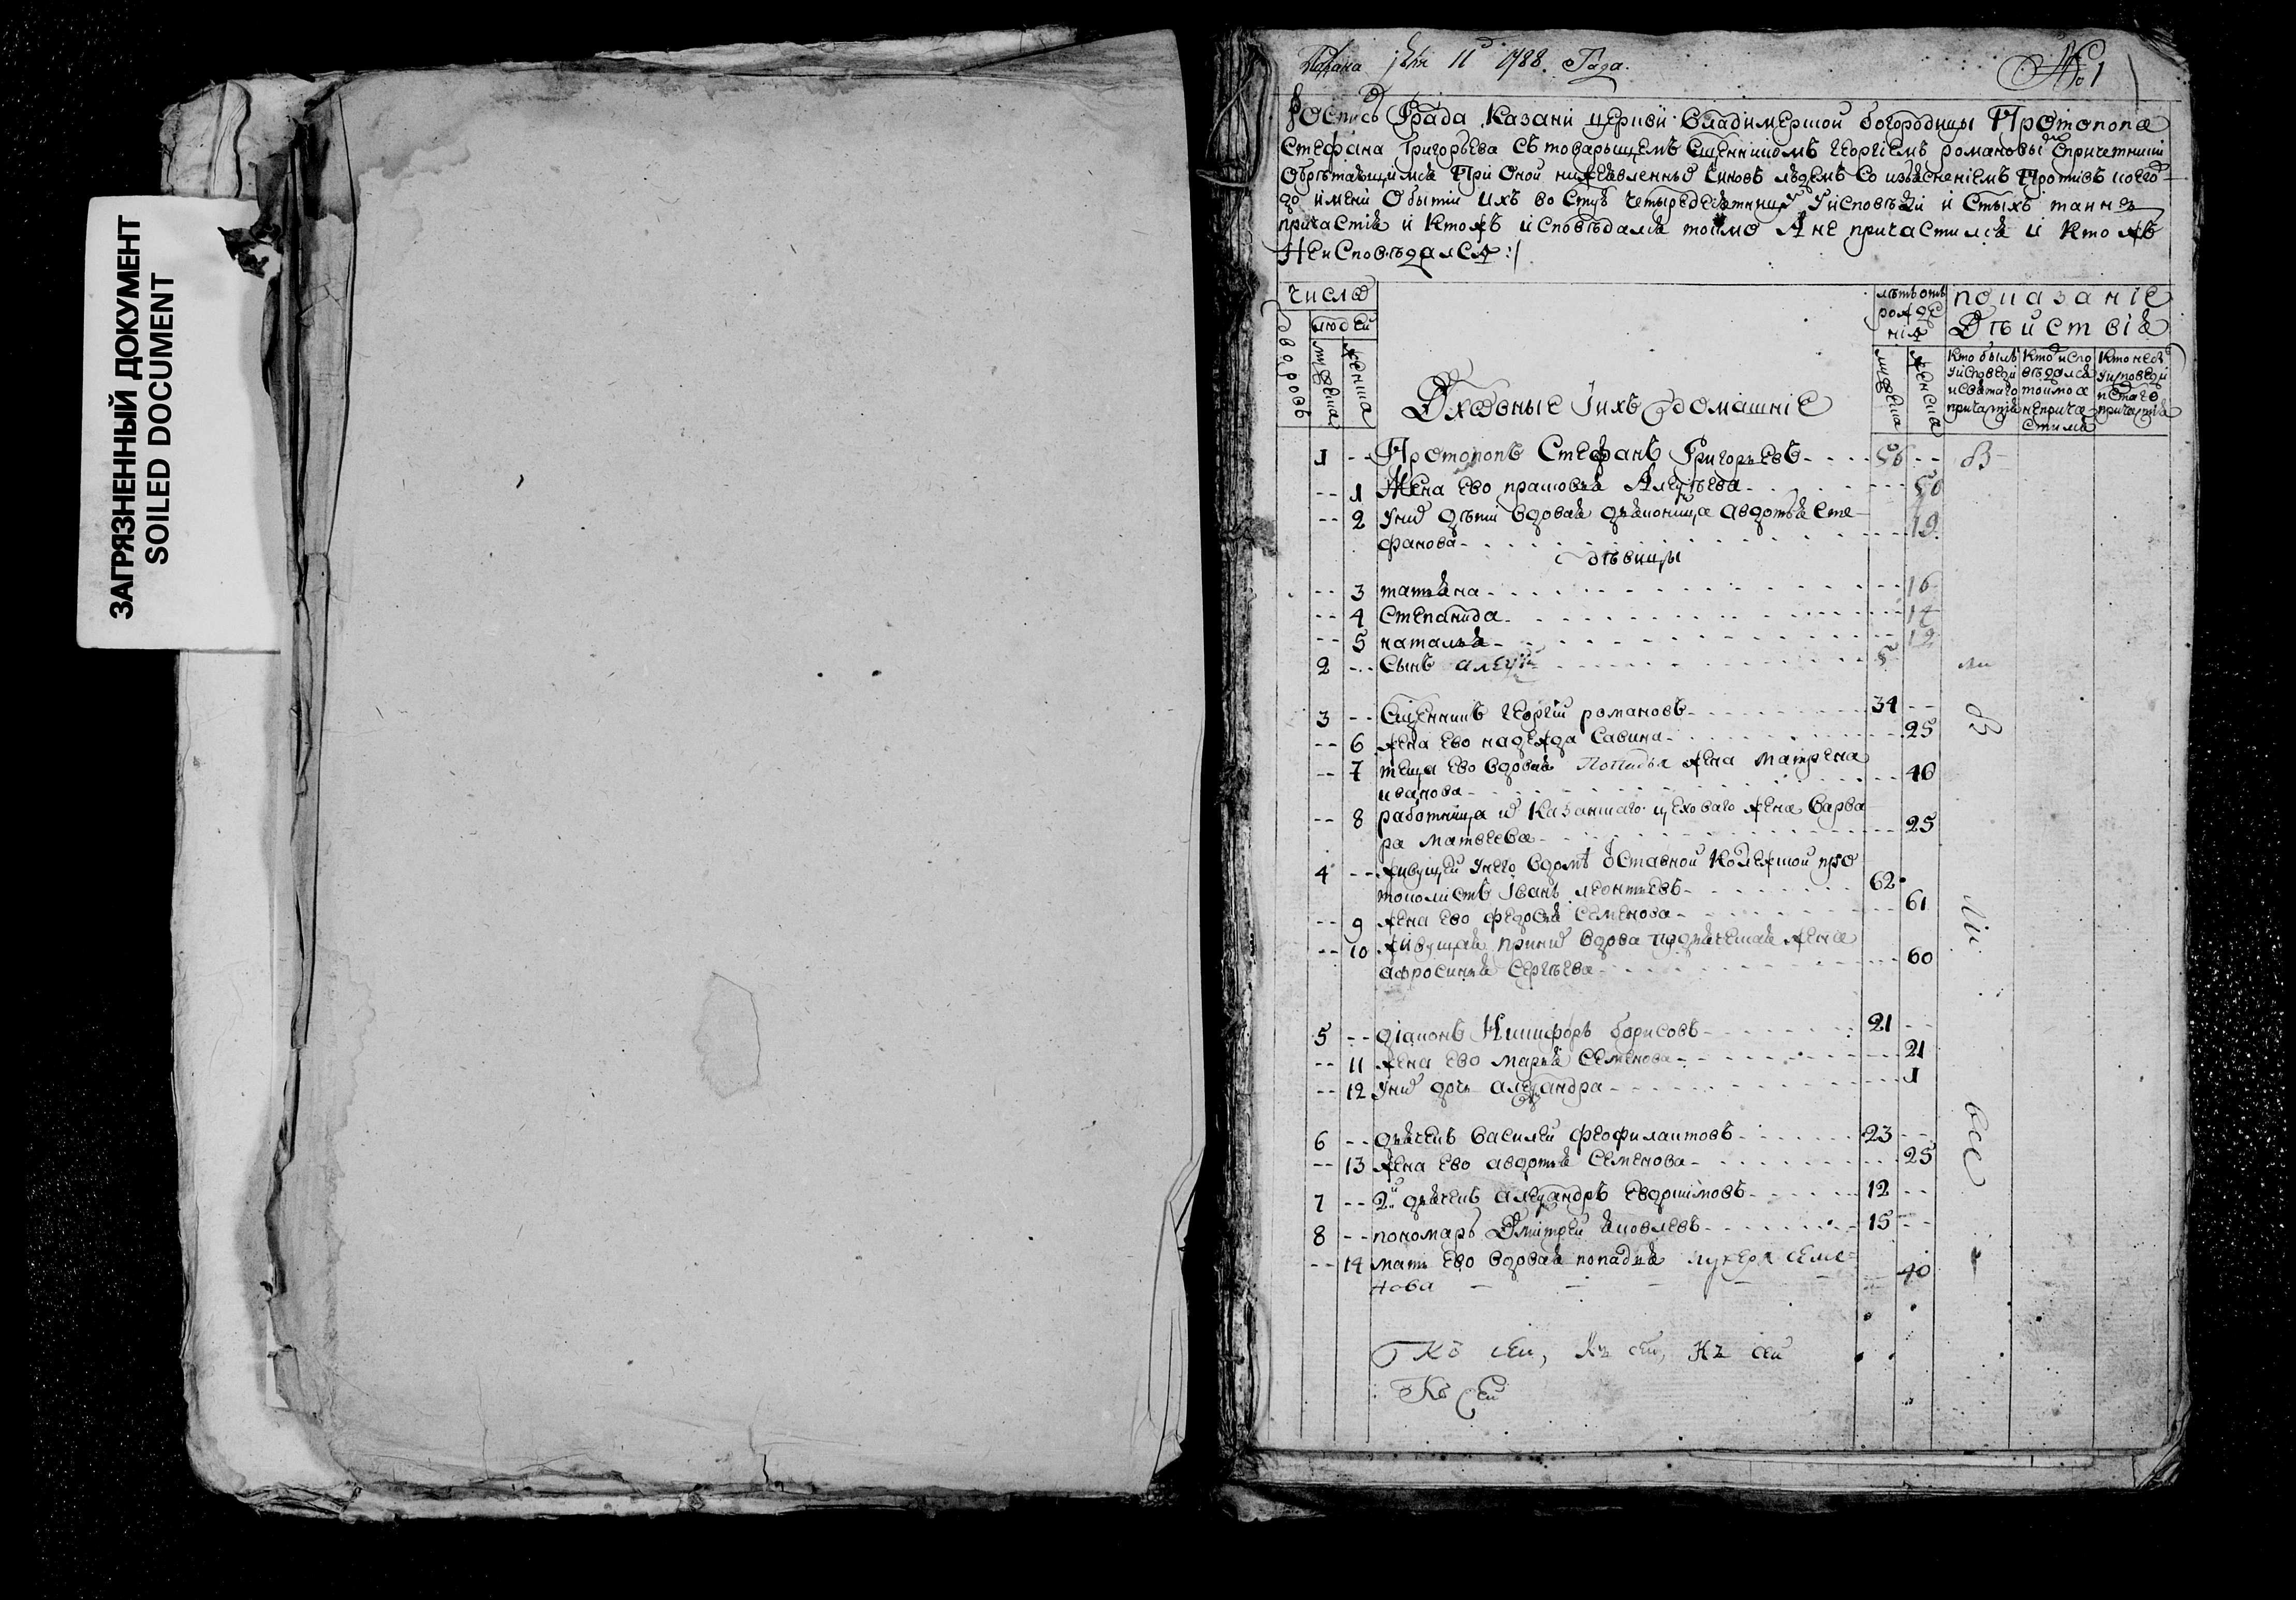 ЗАГРЯЗНЕННЫЙ ДОКУМЕНТ
SOILED DOCUMENT
Подана 11 1788 Года.
№ 1
Роспись Града Казани церкви Владимерской богородицы Протопопа
Стефана Григорьева съ товарыщемъ Сщенникомъ Георгиемъ романовы
Обрѣтающимся При Оной нижеявленныхъ чиновъ людемъ Со изъясненіемъ Противъ коего
до имени О бытіи ихъ во Стую четыредесятницу У исповѣди и Стыхъ таинъ
причастія и Ктожъ исповѣдался токмо А не причастился и Кто жъ
Не исповѣдался :/
Число
людей
дворовъ
мужеска
женска
лѣтъ отъ
рожде
нія
мужеска
женска
показаніе
Дѣйствія
Кто былъ
У исповеди
и Святаго
причастія
Кто испо
вѣдался
токмо а
не прича
стился
Духовные и ихъ домашніе
1 -- Протопопъ Стефанъ Григорьевъ 56 -- В
-- 1 Жена Ево прасковья Алеѯѣева 50
-- 2 У нихъ дѣти вдовая дьяконица авдотья Сте
фанова 19
дѣвицы
-- 3 татьяна 16
-- 4 Степанида 14
-- 5 наталья 12
2 -- Сынъ алеѯѣй 5 мл
3 -- Сщенникъ Георгій романовъ 34 -- В
-- 6 жена Ево надежда Савина 25
-- 7 теща Ево вдовая Попадья жена Матрена
иванова 46
-- 8 работница их Казанскаго цеховаго жена Варва
ра Матвеева 25
4 -- живущей у него в домѣ оставной Колежской про
токолистъ Іванъ леонтьевъ 62
-- 9 жена Ево федосья Семенова 61
-- 10 живущая при нихъ вдова подьяческая жена
афросинья Сергѣева 60
5 -- діаконъ Никифоръ борисовъ 21 --
-- 11 жена Ево марья Семенова 21
-- 12 У нихъ дочь алеѯандра 1
6 -- дьячекъ василей феофилактовъ 23 --
все
-- 13 жена Ево авдотья Семенова 25
7 -- 2й дьячекъ алеѯандръ Евдокимовъ 12 --
8 -- пономарь Дмитрей Яковлевъ 15 --
-- 14 мать Ево вдовая попадья лукерья Семе=
нова 40
Къ сей, Къ сей, Къ сей
Къ сей